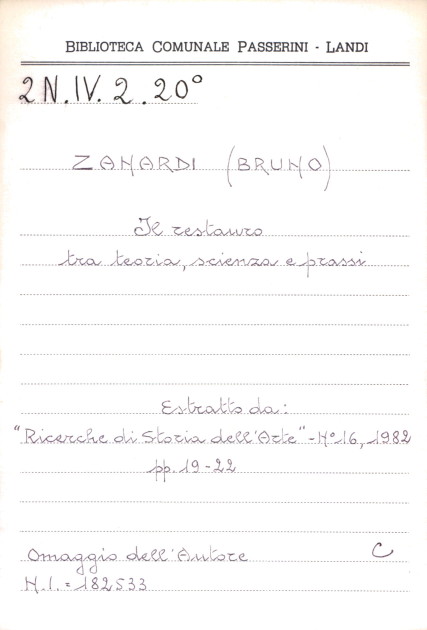 BIBLIOTECA COMUNALE PASSERINI - LANDI
2N.IV.2.20°
ZANARDI (BRUNO)
Il restauro
tra teoria, scienza e prassi
Estratto da:
"Ricerche di Storia dell'Arte" - N° 16, 1982
pp. 19-22
Omaggio dell'Autore C
N.I. = 182533